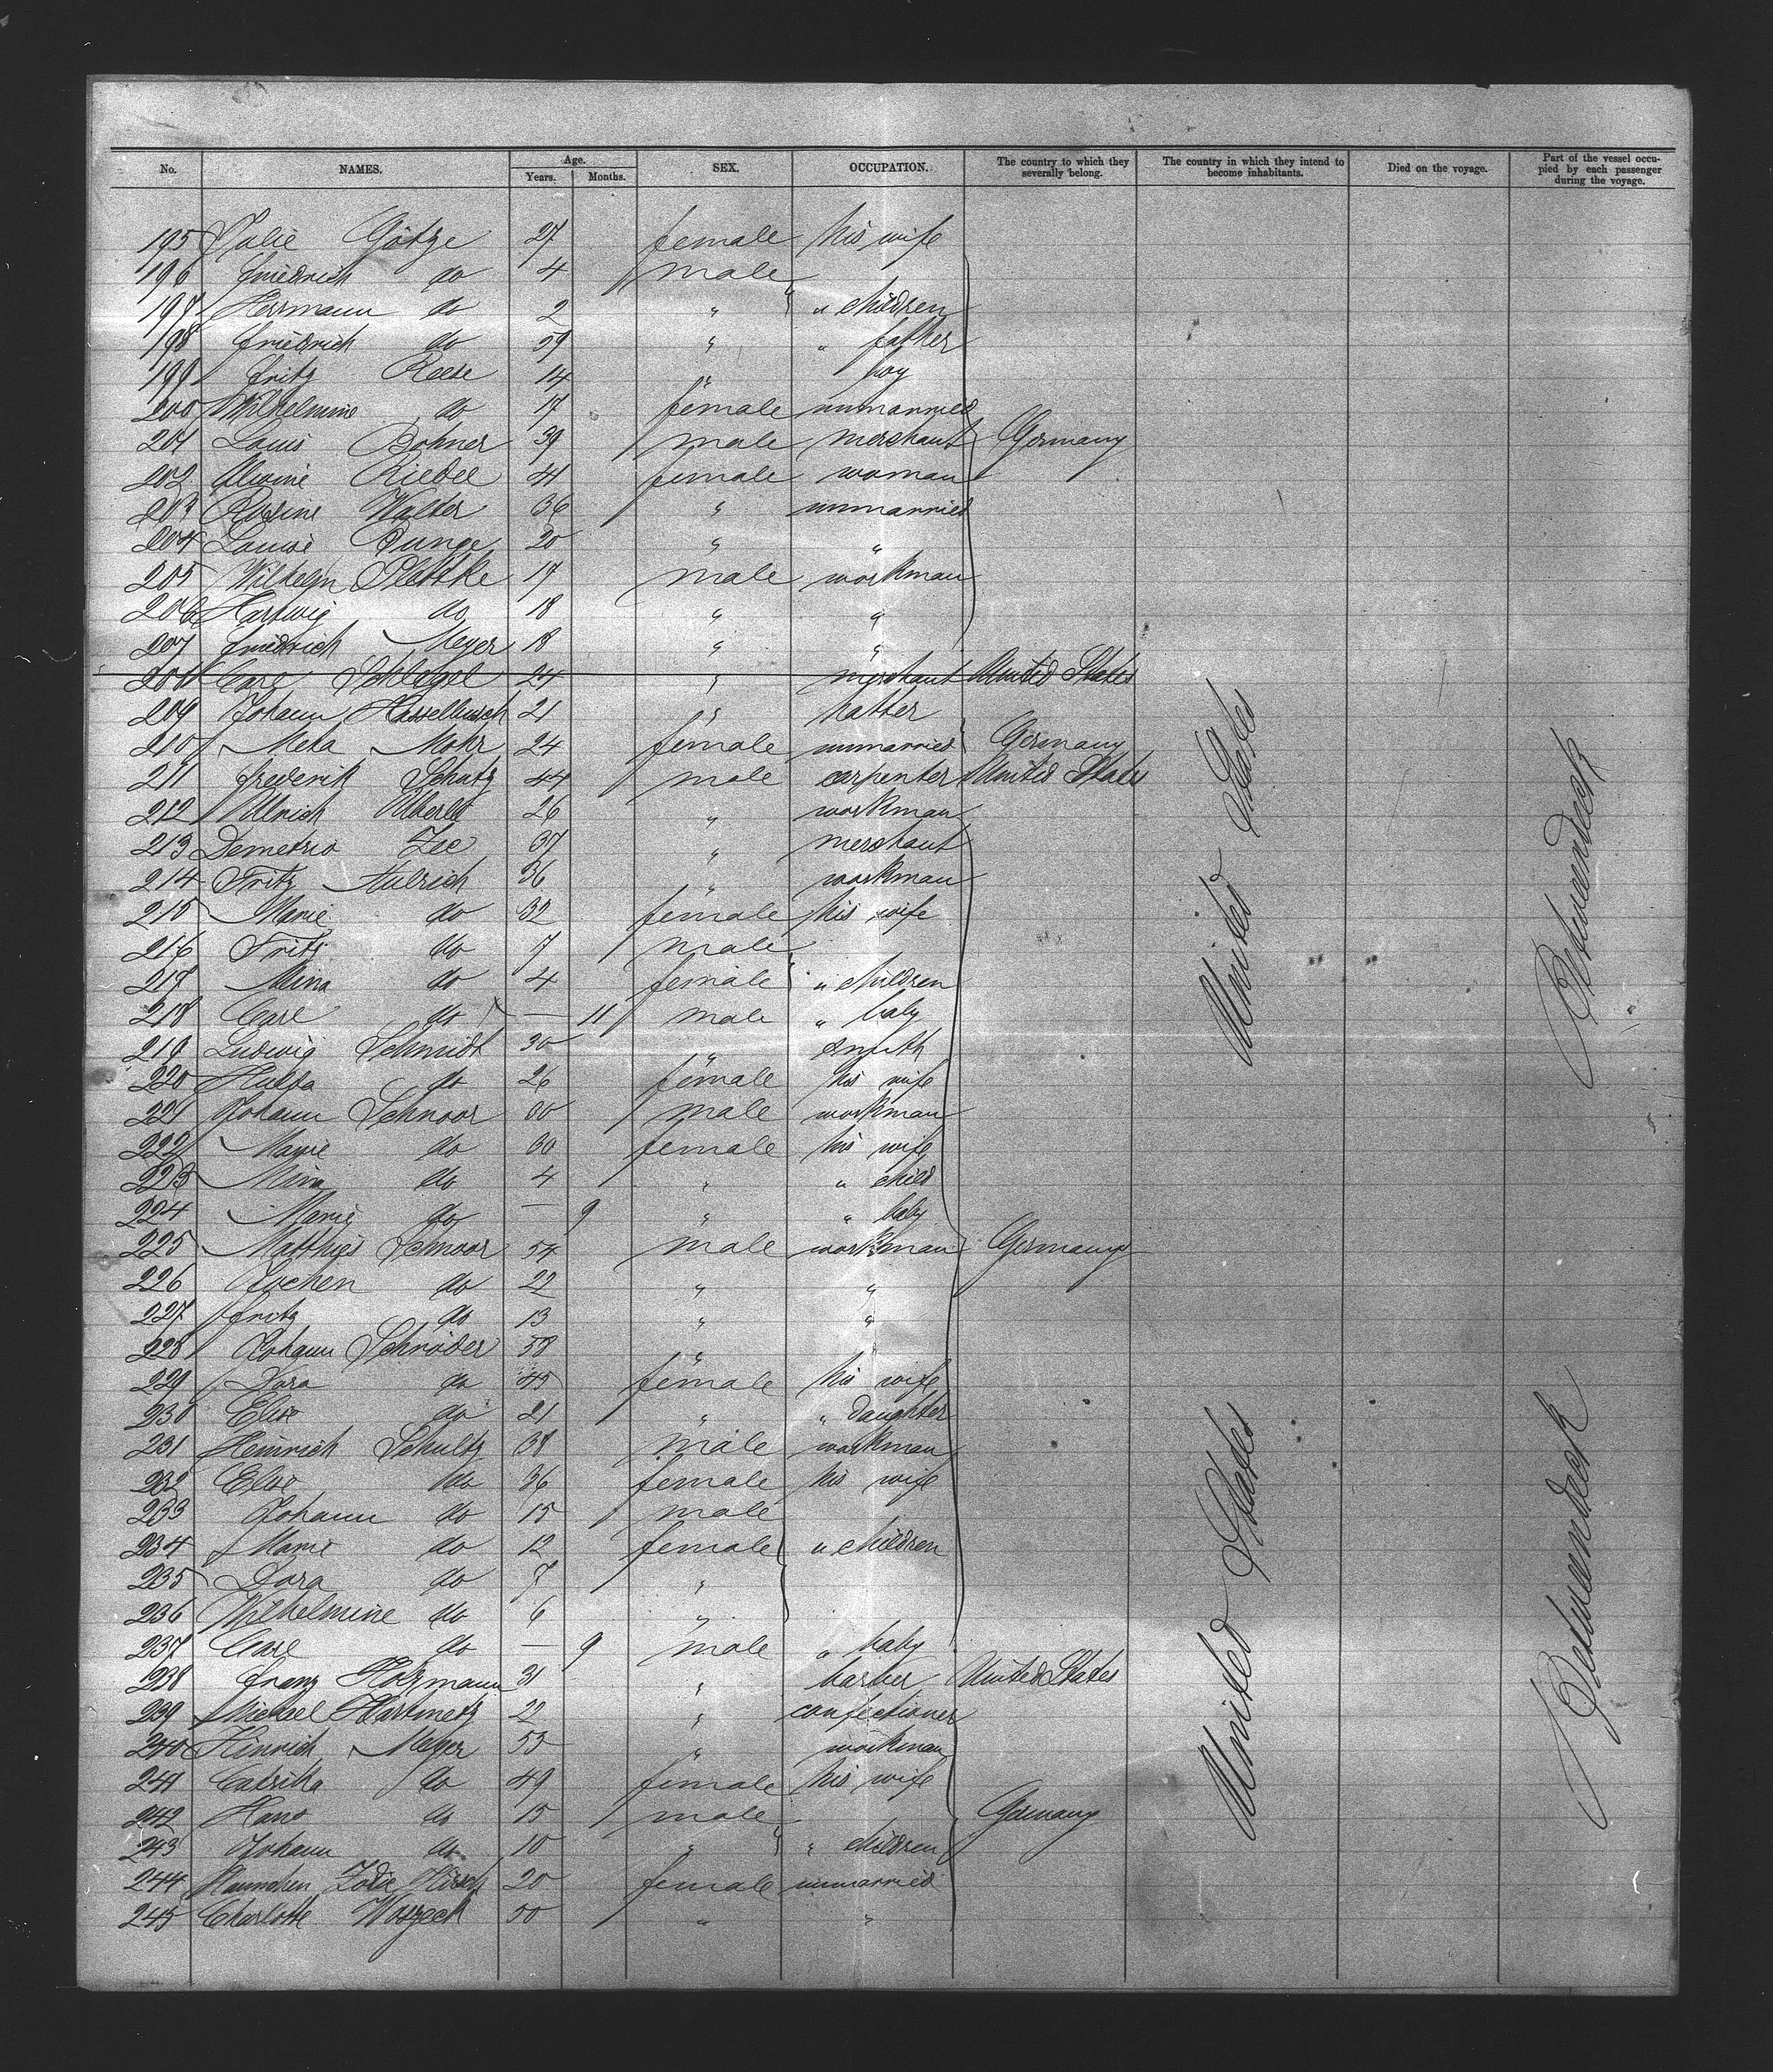 No. NAMES. Age. Years. Months. SEX. OCCUPATION. The country to which they severally belong. The country in which they intend to become inhabitants. Died on the voyage. Part of the vessel occupied by each passenger during the voyage.
195 Julie Götze 27 female his wife
196 Friedrich do 4 male
197 Hermann do 2 " " children
198 Friedrich do 59 " " father
199 Fritz Reese 14 " boy
200 Wilhelmine do 17 female unmarried
201 Louis Bohner 39 male merchant Germany
202 Alwine Riedel 41 female woman
203 Rosine Walter 36 " unmarried
204 Louise Runge 20 " "
205 Wilhelm Plettke 17 male workman
206 Hartwig do 18 " "
207 Friedrich Meyer 18 " "
208 Carl Schlegel 24 " merchant United States
209 Johann Hasselbusch 21 " hatter
210 Meta Mohr 24 female unmarried Germany
211 Frederik Schutz 44 male carpenter United States
212 Ullrich Alberts 26 " workman
213 Demetrio Zee 37 " merchant
214 Fritz Aulrich 36 " workman
215 Marie do 32 female his wife
216 Fritz do 7 male
217 Mina do 4 female " children
218 Carl do — 11 male " baby
219 Ludwig Schmidt 30 " smith
220 Hulda do 26 female his wife
221 Johann Schnoor 30 male workman
222 Marie do 30 female his wife
223 Mina do 4 " " child
224 Marie do — 9 " " baby
225 Matthies Schnoor 54 male workman Germany
226 Jochen do 22 " "
227 Fritz do 13 " "
228 Johann Schröder 58 "
229 Dora do 45 female his wife
230 Elise do 21 " " daughter
231 Heinrich Schultz 38 male workman
232 Elise do 36 female his wife
233 Johann do 15 male
234 Marie do 12 female " children
235 Dora do 7 "
236 Wilhelmine do 6 "
237 Carl do — 9 male " baby
238 Franz Holzmann 31 " barber United States
239 Michael Hartmetz 22 " confectioner
240 Hinrich Meyer 53 " workman
241 Catrika do 49 female his wife
242 Hans do 15 male Germany
243 Johann do 10 " " children
244 Hannchen Hirsch 20 female unmarried
245 Charlotte Woszeck 50 " "
United States
Betweendeck
United States
Betweendeck